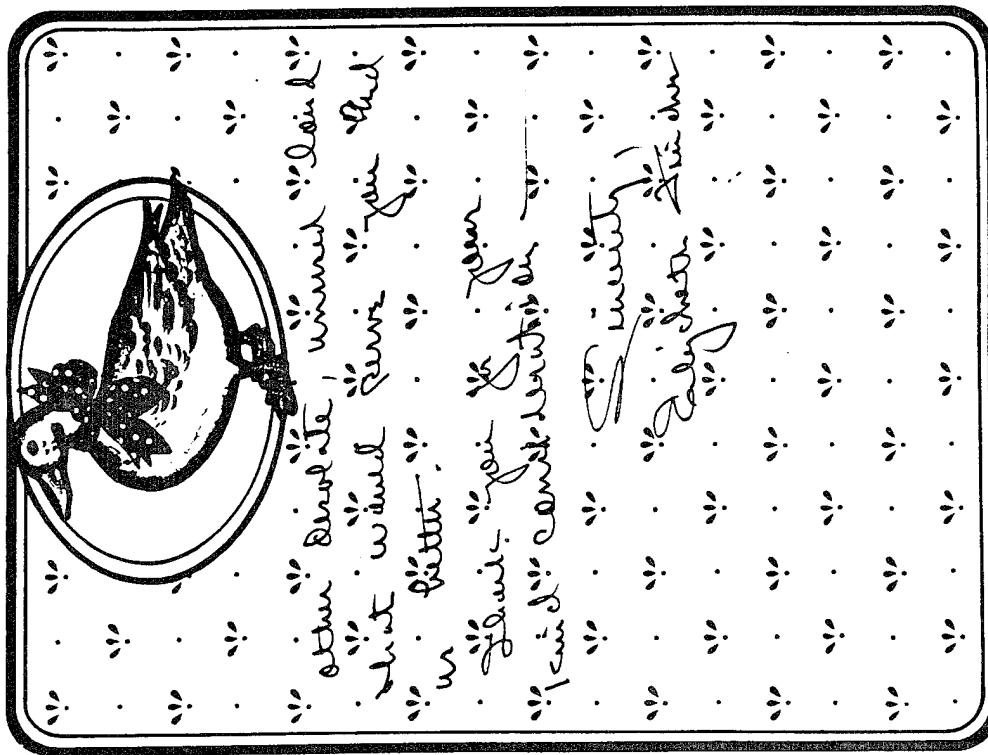 other desolate, unused land
that would serve you and
us better.
Thank you for your
kind consideration
Sincerely,
Elizabeth